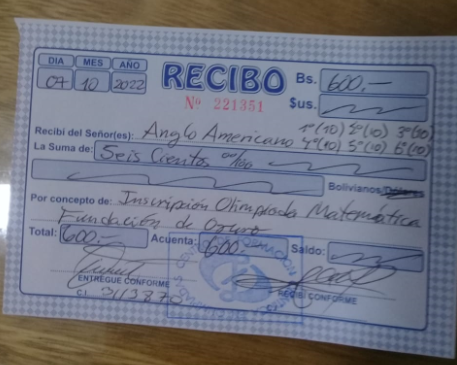 DIA MES AÑO
07 10 2022
RECIBO
Bs. 600.-
Nº 221351
$us.
1º(10) 2º(10) 3º(10)
Recibí del Señor(es): Anglo Americano 4º(10) 5º(10) 6º(10)
La Suma de: Seis Cientos 00/100
Bolivianos/Dólares
Por concepto de: Inscripción Olimpiada Matemática
Fundación de Oruro
Total: 600.- Acuenta: 600.- Saldo:
ENTREGUE CONFORME
RECIBI CONFORME
C.I. 3113870
C.I.